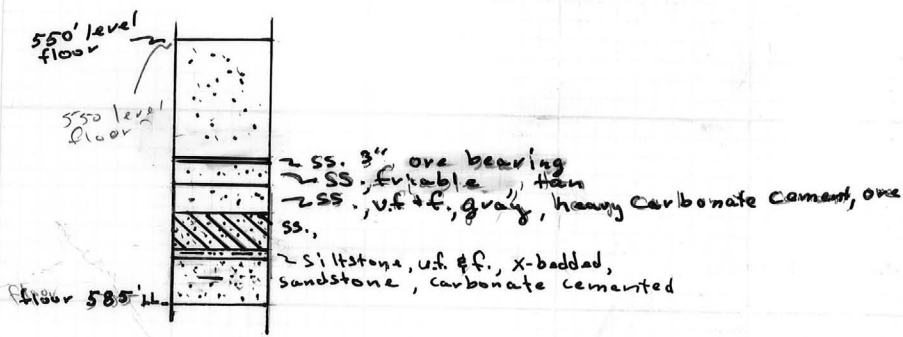 550' level
floor
550 level
floor
~ SS. 3", ore bearing
~ SS., friable, tan
~ SS., v.f. & f., gray, heavy carbonate cement, ore
SS.,
~ Siltstone, v.f. & f., X-bedded,
sandstone, carbonate cemented
floor 585'